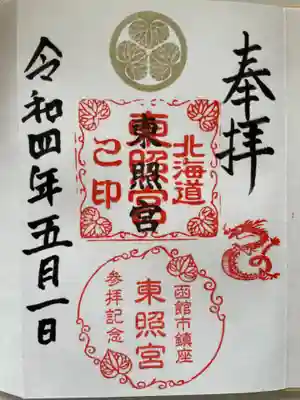 奉拝
北海道
東照宮
東照宮
己印
函館市鎮座
東照宮
参拝記念
令和四年五月一日